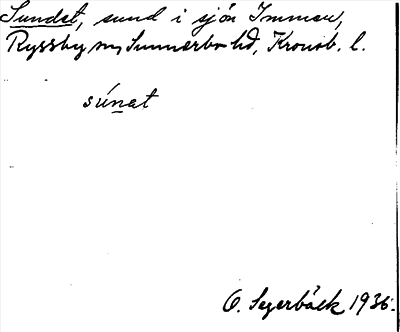 Sundet, sund i sjön Immen,
Ryssby sn, Sunnerbo hd, Kronob. l.
súnat
O. Segerbäck 1936.